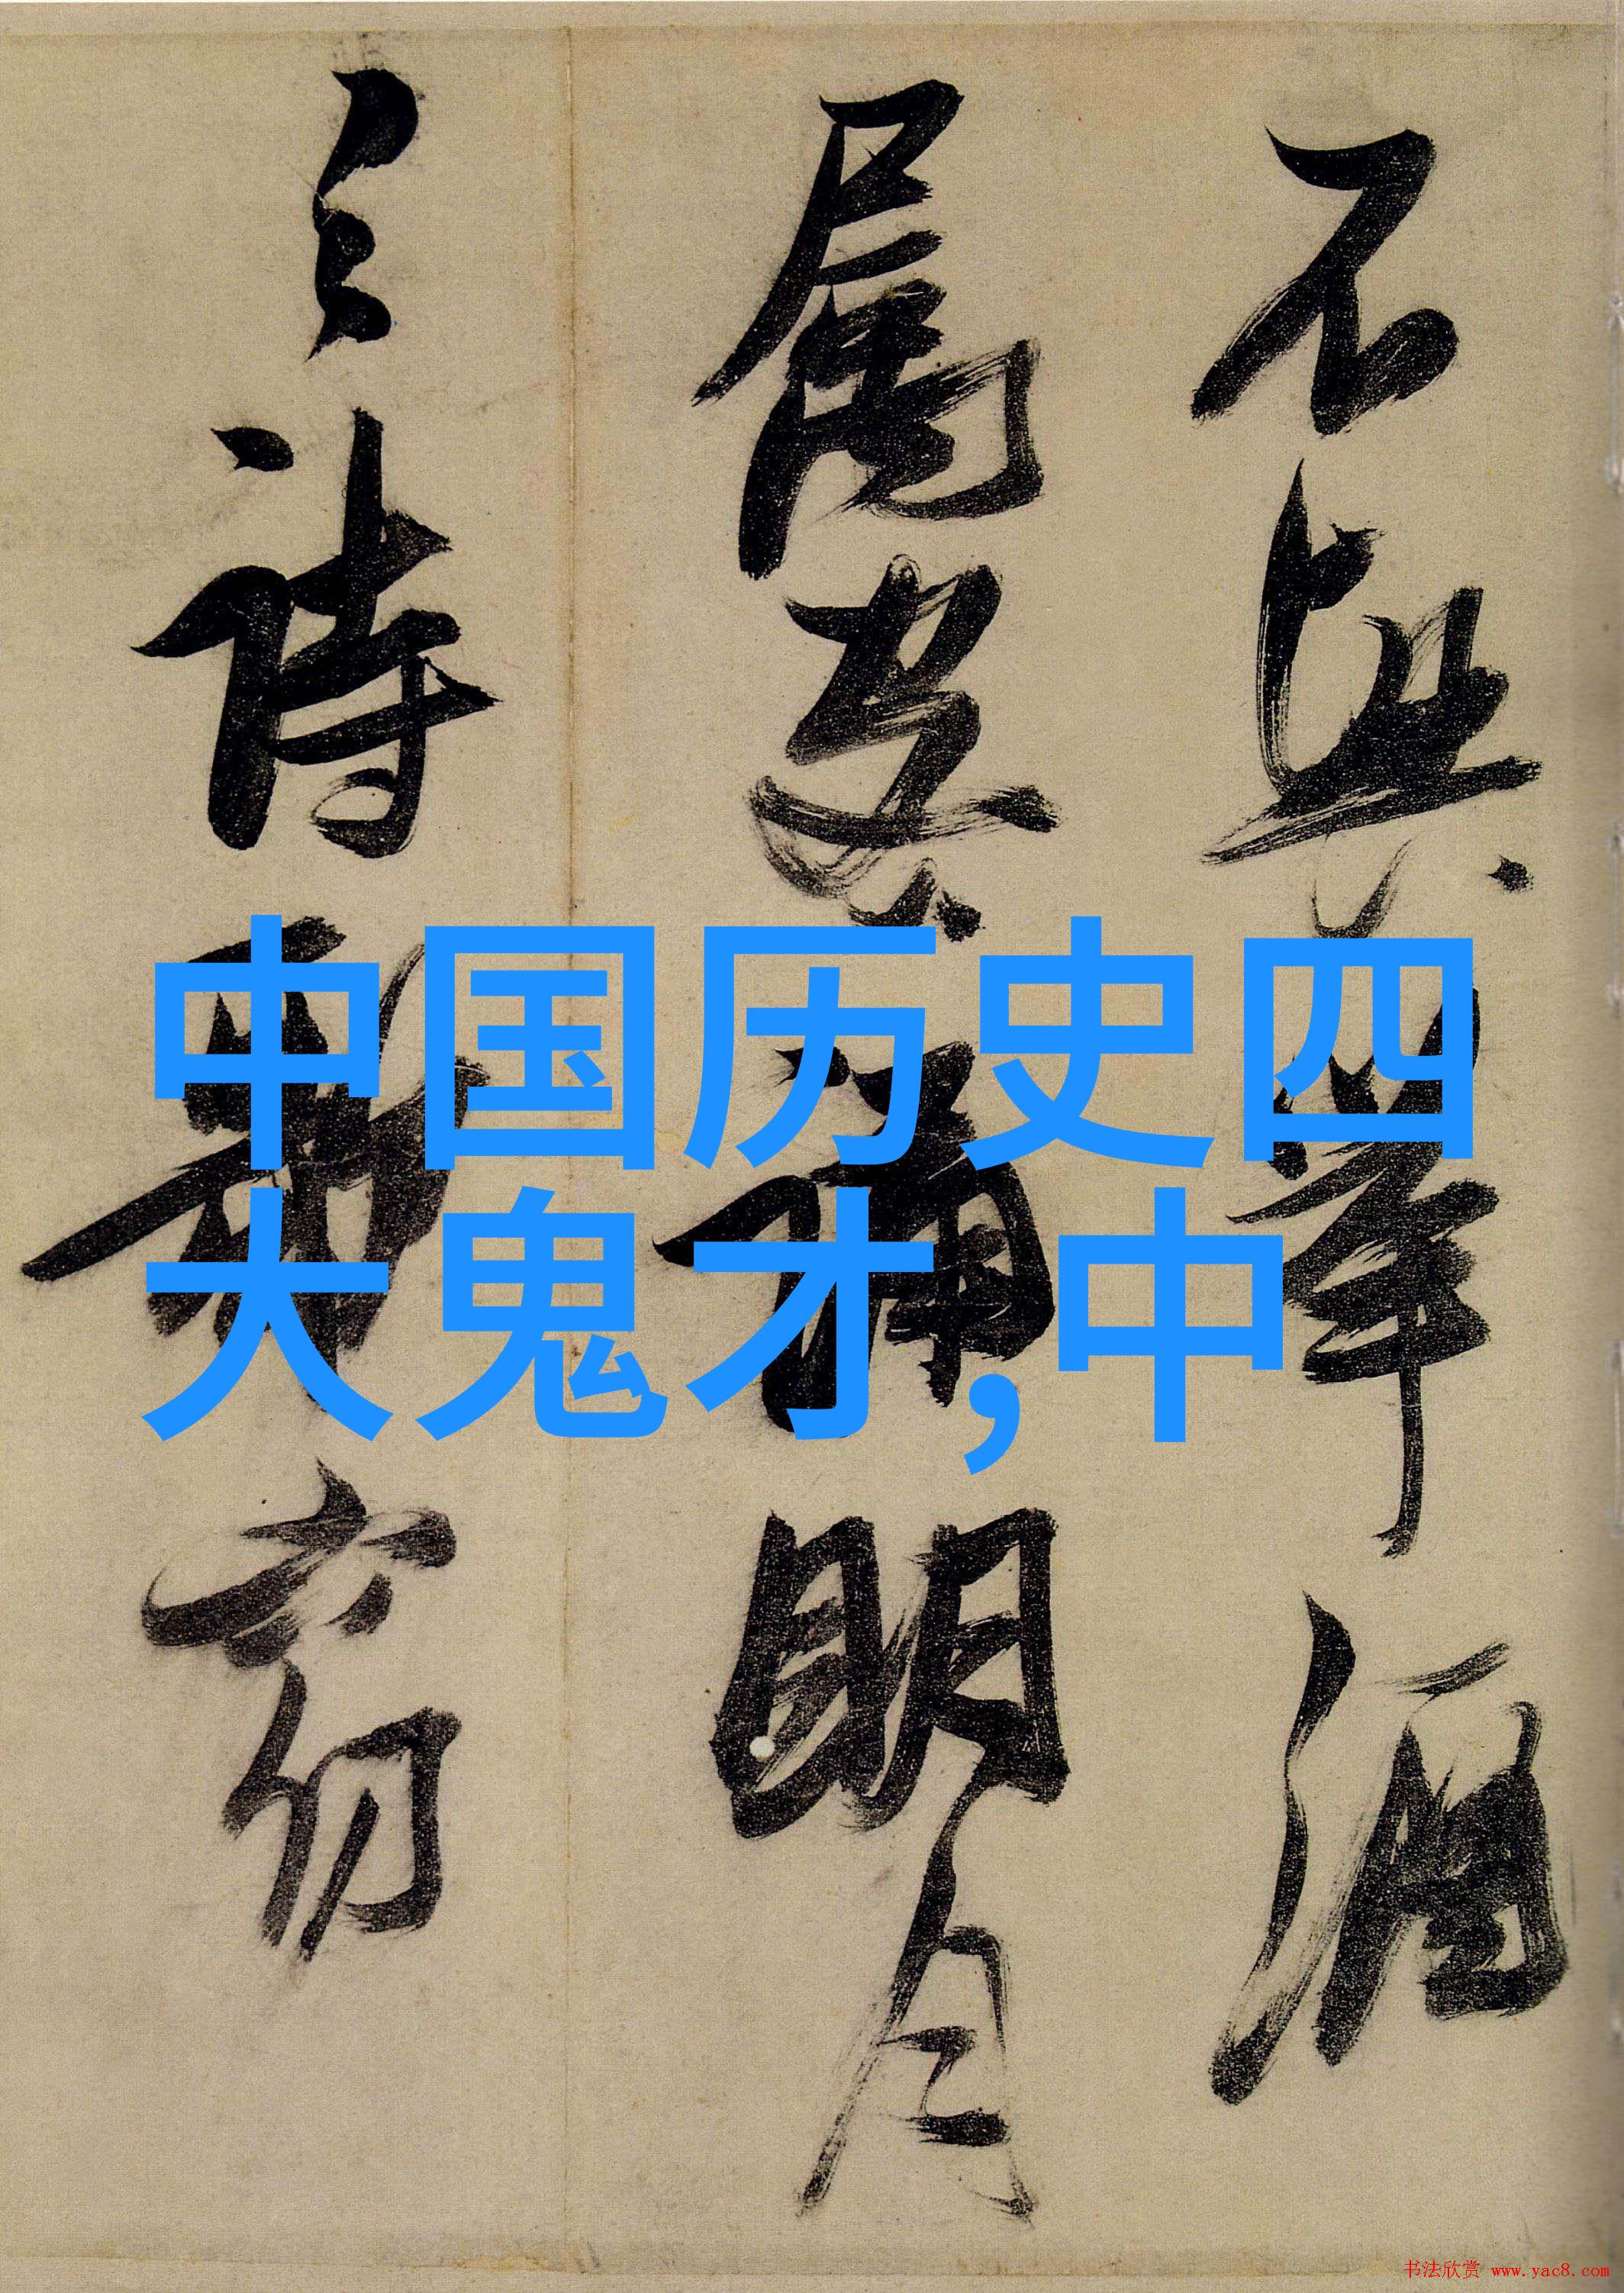 中国历史四
大鬼才,中
不興舉酒
属客誦明月
之詩歌窈
书法欣赏 www.yac8.com